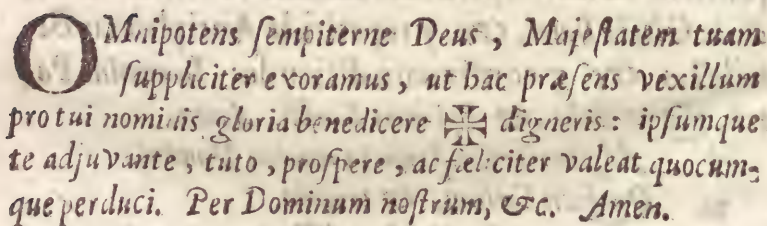 OMnipotens ſempiterne Deus, Majeſtatem tuam
ſuppliciter exoramus, ut hac præſens vexillum
pro tui nominis gloria benedicere ✠ digneris: ipſumque
te adjuvante, tuto, proſpere, ac fæliciter valeat quocum-
que perduci. Per Dominum noſtrum, &c. Amen.